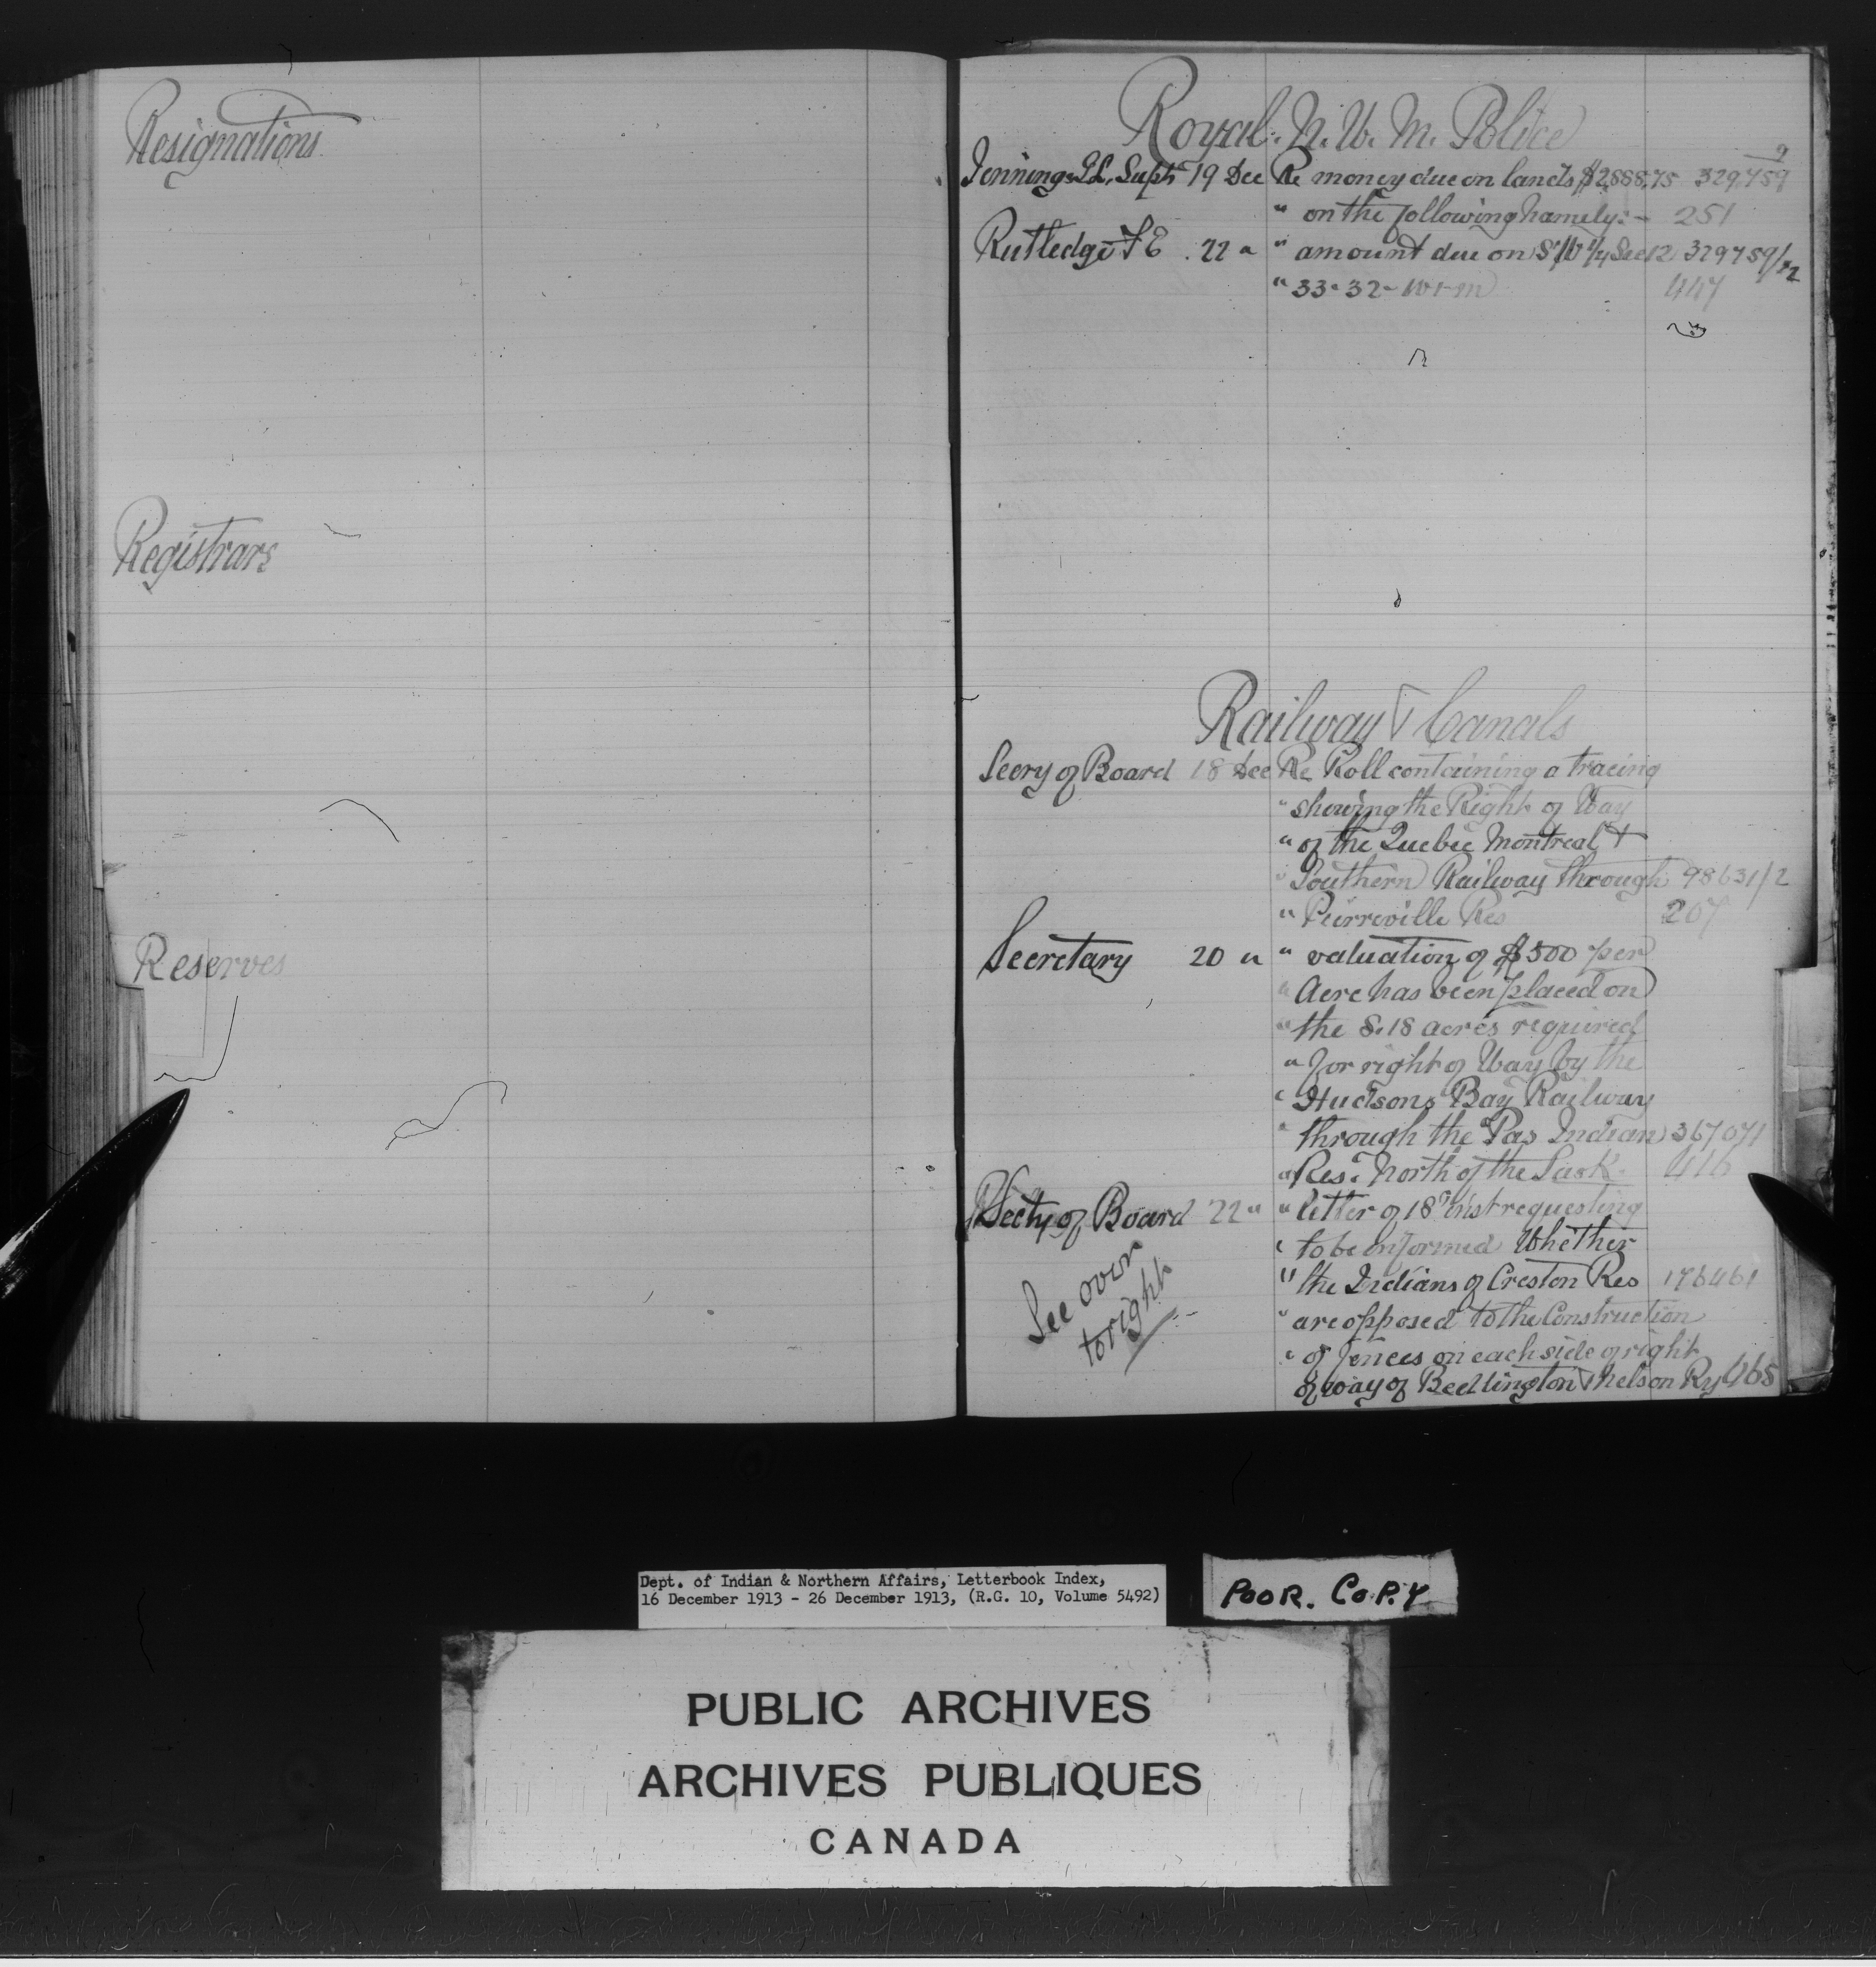 Resignations
Registrars
Reserves
Royal. N. W. M. Police
Jennings G.L. Supt 19 Dec Re money due on lands $2888.75 329,759
" on the following namely:- 251
Rutledge F E . 22 " " amount due on S.W 1/4 Sec 12 329759/12
" 33-32-W1M 447
Railway & Canals
Secry of Board 18 Dec Re Roll containing a tracing
" showing the Right of Way
" of the Quebec Montreal &
" Southern Railway through 98631/2
" Peirreville Res 207
Secretary 20 " " valuation of $500 per
" Acre has been placed on
" the 8.18 acres required
" for right of Way by the
" Hudsons Bay Railway
" through the Pas Indian 367071
" Res. North of the Sask. 416
Secty of Board 22 " " letter of 18th inst requesting
" to be informed Whether
" the Indians of Creston Res 176461
" are opposed to the Construction
" of fences on each side of right
of way of Bedlington & Nelson Ry 468
See over
to right
Dept. of Indian & Northern Affairs, Letterbook Index,
16 December 1913 - 26 December 1913, (R.G. 10, Volume 5492)
POOR. COPY
PUBLIC ARCHIVES
ARCHIVES PUBLIQUES
CANADA